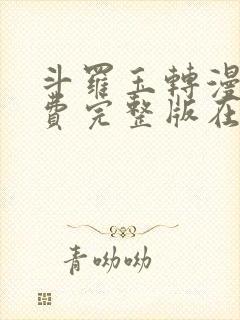 斗羅玉轉漫
費完整版在
青呦呦